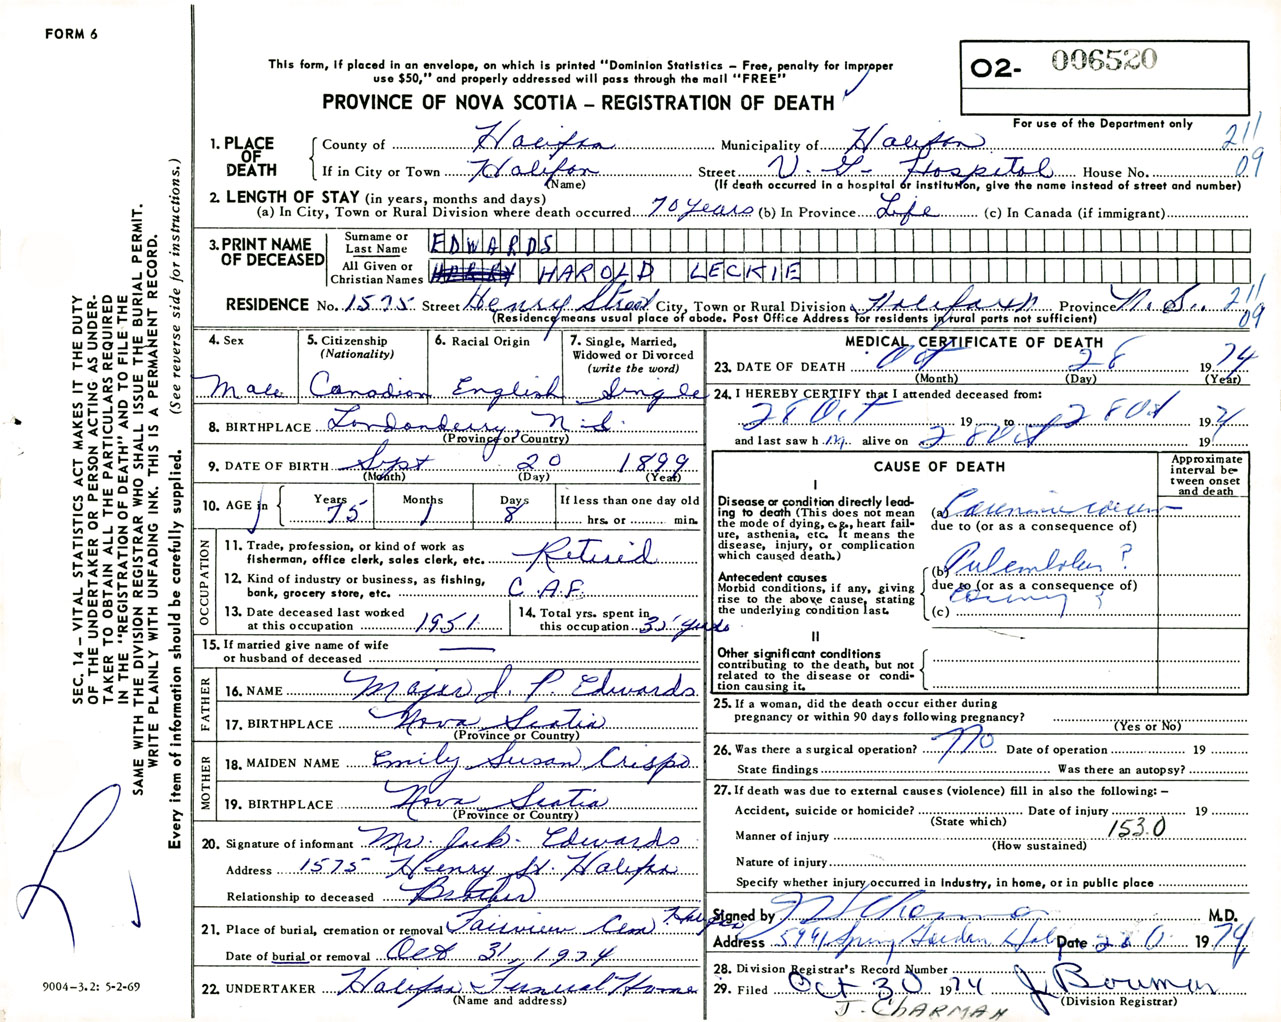 FORM 6
This form, if placed in an envelope, on which is printed "Dominion Statistics – Free, penalty for improper
use $50," and properly addressed will pass through the mail "FREE"
PROVINCE OF NOVA SCOTIA – REGISTRATION OF DEATH
O2- 006520
For use of the Department only
1. PLACE OF DEATH
County of Halifax Municipality of Halifax 211
If in City or Town Halifax Street V. G. Hospital House No. 09
(Name) (If death occurred in a hospital or institution, give the name instead of street and number)
2. LENGTH OF STAY (in years, months and days)
(a) In City, Town or Rural Division where death occurred 70 years (b) In Province Life (c) In Canada (if immigrant)
3. PRINT NAME OF DECEASED
Surname or Last Name EDWARDS
All Given or Christian Names HARRY HAROLD LECKIE
RESIDENCE No. 1575 Street Henry Street City, Town or Rural Division Halifax Province N. S. 211
(Residence means usual place of abode. Post Office Address for residents in rural parts not sufficient) 09
4. Sex Male
5. Citizenship (Nationality) Canadian
6. Racial Origin English
7. Single, Married, Widowed or Divorced (write the word) Single
8. BIRTHPLACE Londonderry, N.S.
(Province or Country)
9. DATE OF BIRTH Sept 20 1899
(Month) (Day) (Year)
10. AGE in Years 75 Months 1 Days 8 If less than one day old
hrs. or min.
OCCUPATION
11. Trade, profession, or kind of work as
fisherman, office clerk, sales clerk, etc. Retired
12. Kind of industry or business, as fishing,
bank, grocery store, etc. C.A.F.
13. Date deceased last worked
at this occupation 1951
14. Total yrs. spent in
this occupation 31 years
15. If married give name of wife
or husband of deceased
FATHER
16. NAME Major J. P. Edwards
17. BIRTHPLACE Nova Scotia
(Province or Country)
MOTHER
18. MAIDEN NAME Emily Susan Crispo
19. BIRTHPLACE Nova Scotia
(Province or Country)
20. Signature of informant Mr. Jack Edwards
Address 1575 Henry St. Halifax
Relationship to deceased Brother
21. Place of burial, cremation or removal Fairview Cem Halifax
Date of burial or removal Oct 31, 1974
22. UNDERTAKER Halifax Funeral Home
(Name and address)
MEDICAL CERTIFICATE OF DEATH
23. DATE OF DEATH Oct 28 1974
(Month) (Day) (Year)
24. I HEREBY CERTIFY that I attended deceased from:
28 Oct 19 to 28 Oct 1974
and last saw h im alive on 28 Oct 19
CAUSE OF DEATH
Approximate interval between onset and death
I
Disease or condition directly lead-
ing to death (This does not mean
the mode of dying, e.g., heart fail-
ure, asthenia, etc. It means the
disease, injury, or complication
which caused death.)
(a)
due to (or as a consequence of)
Antecedent causes
Morbid conditions, if any, giving
rise to the above cause, stating
the underlying condition last.
(b) ?
due to (or as a consequence of)
(c) ?
II
Other significant conditions
contributing to the death, but not
related to the disease or condi-
tion causing it.
25. If a woman, did the death occur either during
pregnancy or within 90 days following pregnancy?
(Yes or No)
26. Was there a surgical operation? No Date of operation 19
State findings Was there an autopsy?
27. If death was due to external causes (violence) fill in also the following: –
Accident, suicide or homicide? Date of injury 19
(State which)
Manner of injury 153.0
(How sustained)
Nature of injury
Specify whether injury occurred in industry, in home, or in public place
Signed by M.D.
Address 5991 Spring Garden Date 28 O 1974
28. Division Registrar's Record Number
29. Filed Oct 30 1974 J Bowman
(Division Registrar)
J. CHARMAN
SEC. 14 – VITAL STATISTICS ACT MAKES IT THE DUTY
OF THE UNDERTAKER OR PERSON ACTING AS UNDER-
TAKER TO OBTAIN ALL THE PARTICULARS REQUIRED
IN THE "REGISTRATION OF DEATH" AND TO FILE THE
SAME WITH THE DIVISION REGISTRAR WHO SHALL ISSUE THE BURIAL PERMIT.
WRITE PLAINLY WITH UNFADING INK. THIS IS A PERMANENT RECORD.
Every item of information should be carefully supplied. (See reverse side for instructions.)
9004-3.2: 5-2-69